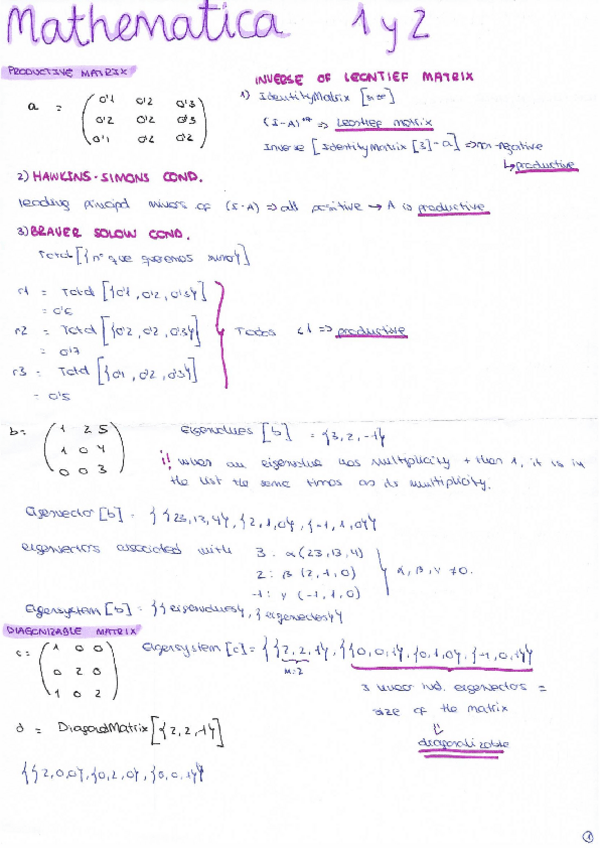 Mathematica 1 y 2
PRODUCTIVE MATRIX
a = (0'1 0'2 0'3
0'2 0'2 0'3
0'1 0'2 0'2)
INVERSE OF LEONTIEF MATRIX
1) IdentityMatrix [nº]
(I-A)⁻¹ => Leontief matrix
Inverse [IdentityMatrix [3]-a] => non-negative
↳ productive
2) HAWKINS-SIMONS COND.
leading principal minors of (I-A) => all positive → A is productive
3) BRAVER SOLOW COND.
Total [{nº que queremos sumar}]
r1 = Total [{0'1, 0'2, 0'3}]
= 0'6
r2 = Total [{0'2, 0'2, 0'3}]
= 0'7
r3 = Total [{0'1, 0'2, 0'3}]
= 0'5
Todos <1 => productive
b = (1 2 5
1 0 4
0 0 3)
Eigenvalues [b] = {3, 2, -1}
!! when an eigenvalue has multiplicity + than 1, it is in
the list the same times as its multiplicity.
Eigenvector [b] = {{23, 13, 4}, {2, 1, 0}, {-1, 1, 0}}
eigenvectors associated with 3: α (23, 13, 4)
2: β (2, -1, 0)
-1: γ (-1, 1, 0)
α, β, γ ≠ 0.
Eigensystem [b] = {{eigenvalues}, {eigenvectors}}
DIAGONIZABLE MATRIX
c = (1 0 0
0 2 0
1 0 2)
Eigensystem [c] = {{2, 2, 1}, {{0, 0, 1}, {0, 1, 0}, {-1, 0, 1}}
M=2
3 linear ind. eigenvectors =
size of the matrix
diagonalizable
d = DiagonalMatrix [{2, 2, 1}]
{{2, 0, 0}, {0, 2, 0}, {0, 0, 1}}
1